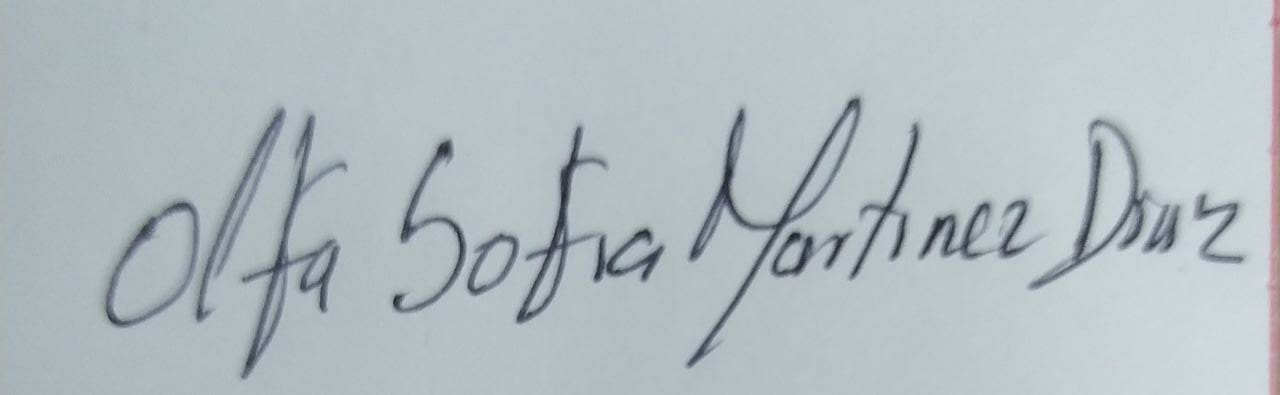 Olfa Sofia Martinez Diaz